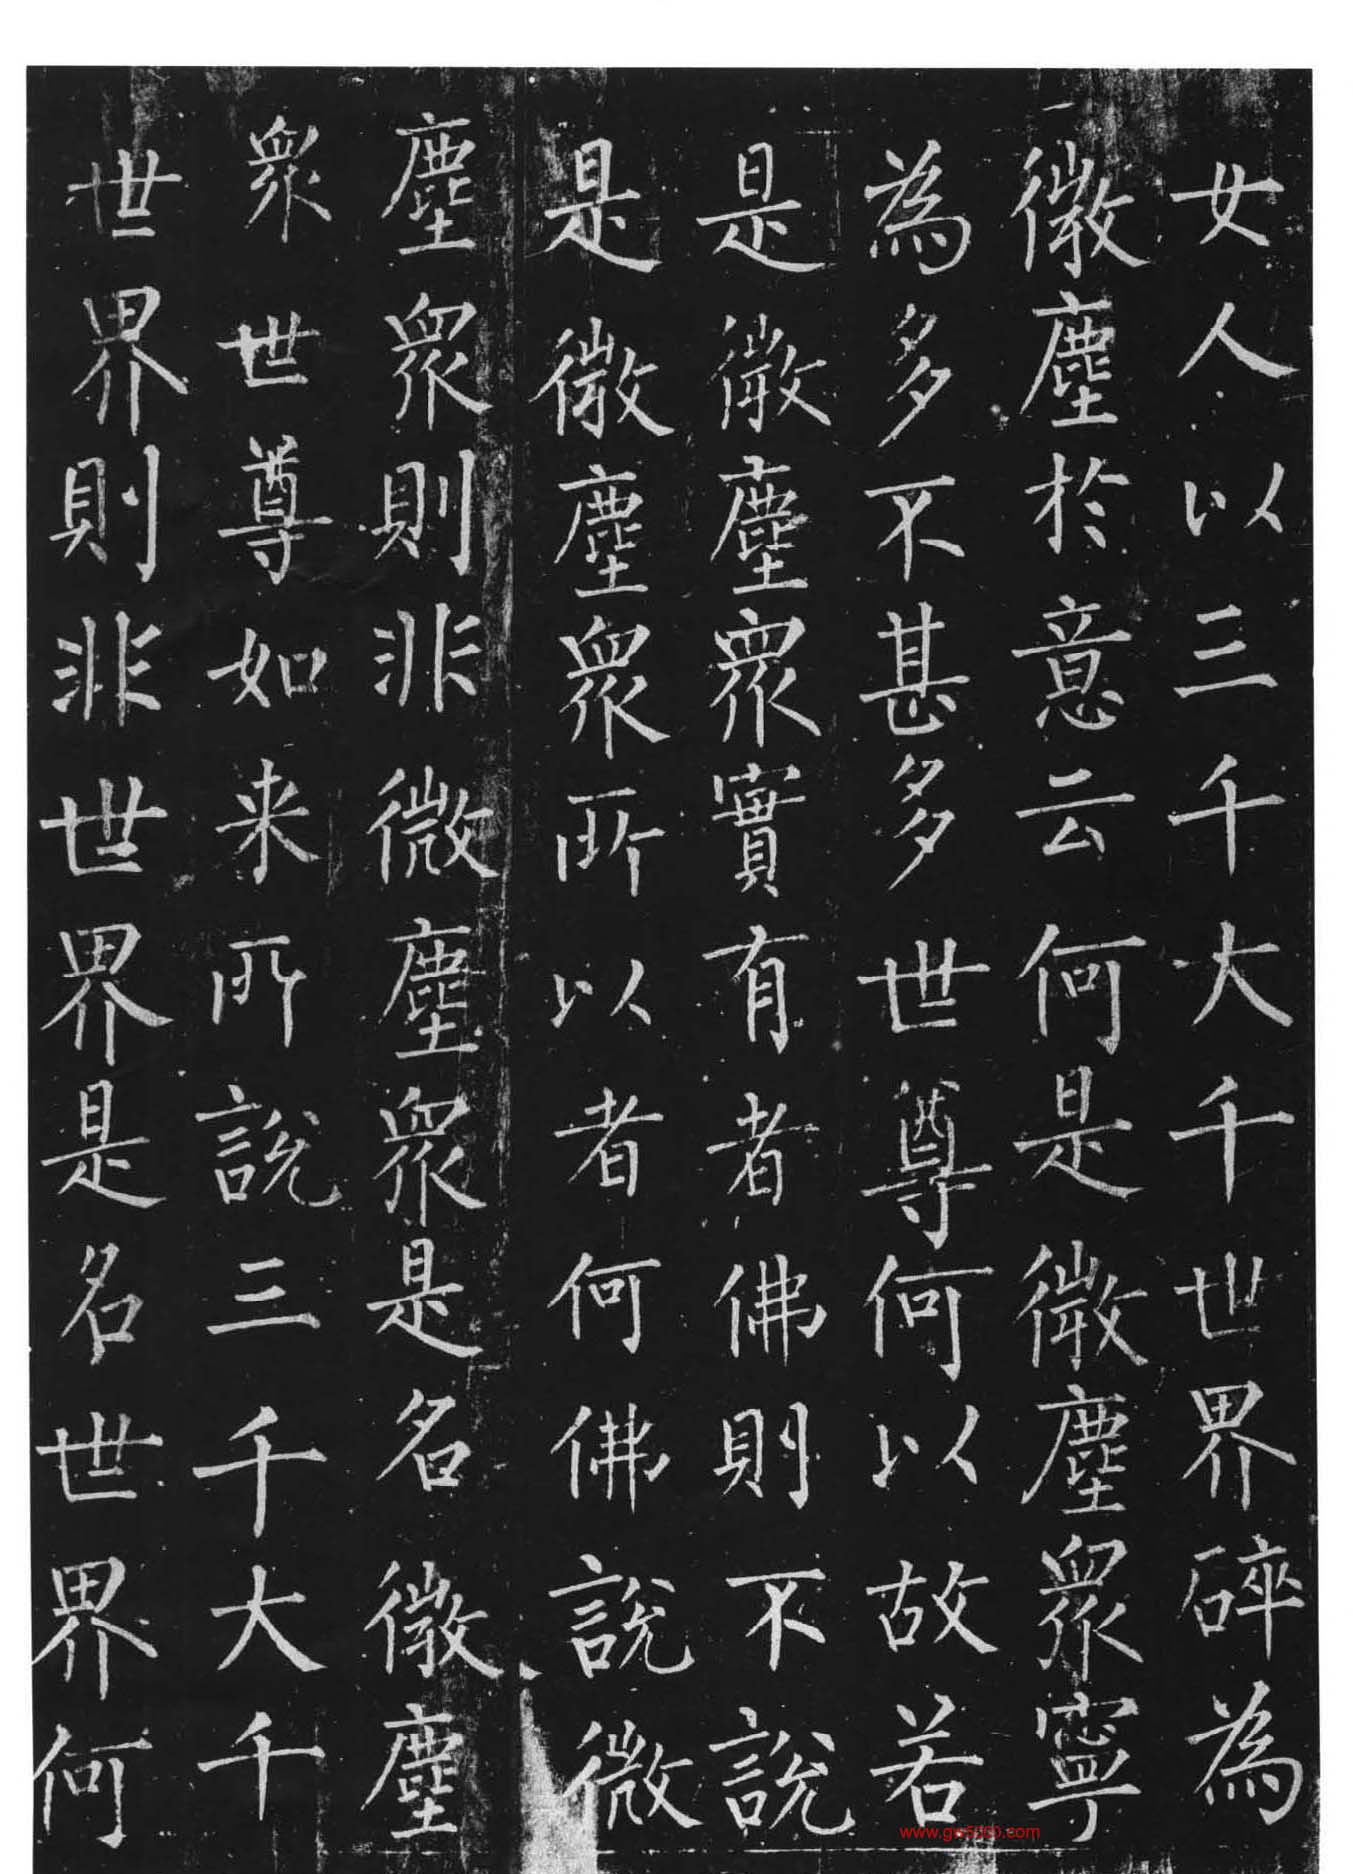 女人以三千大千世界碎為
微塵於意云何是微塵眾寧
為多不甚多世尊何以故若
是微塵眾實有者佛則不說
是微塵眾所以者何佛說微
塵眾則非微塵眾是名微塵
眾世尊如来所說三千大千
世界則非世界是名世界何
www.gw5060.com